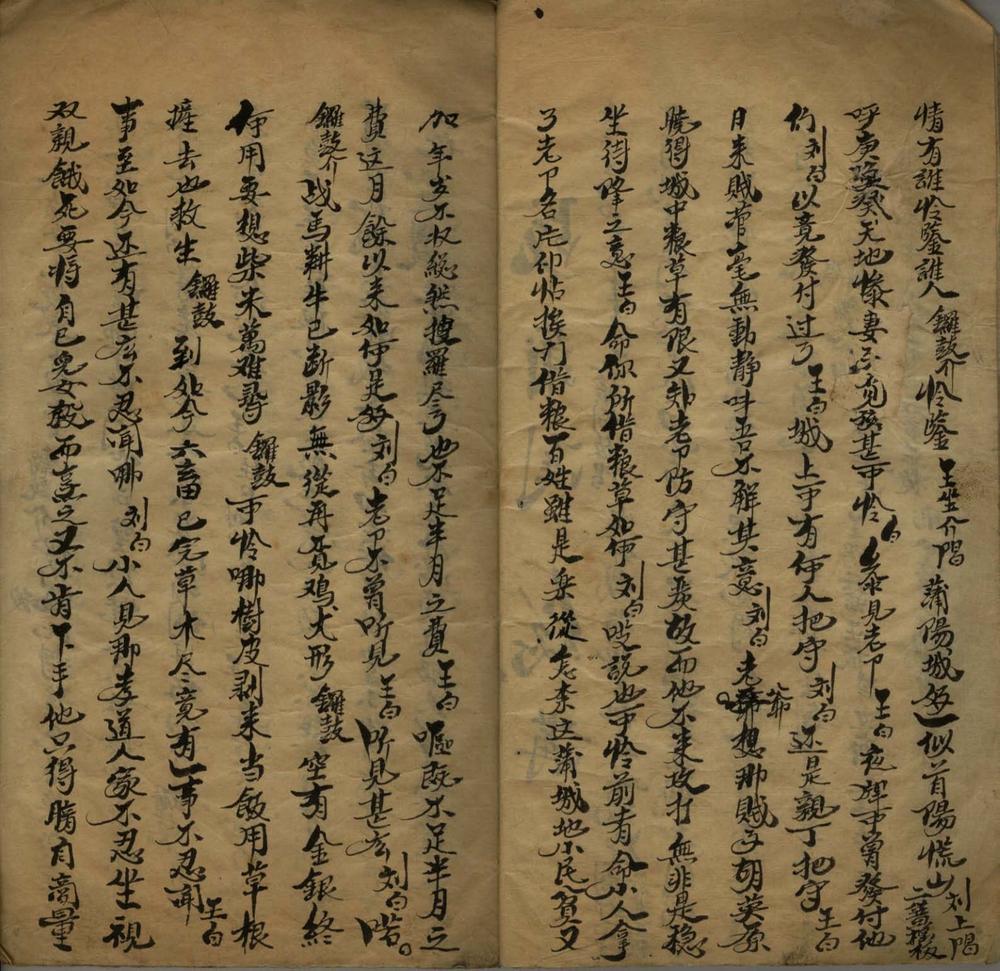 情有誰怜鑒誰人 鑼鼓介 怜鑒 王坐介唱 蒲陽城好一似首陽慌山 刘上唱二簧
呼庚癸天地慘妻子 甚可怜 白 叅見老卩 王白 夜牌可曾發付他
们 刘白 以竟發付过了 王白 城上可有何人把守 刘白 还是親丁把守 王白
日来賊营毫無動静吁吾不觧其意 刘白 老爷想那賊子胡英原
曉得城中粮草有限又知老卩防守甚嚴故而他不来攻打無非是稳
坐待降之意 王白 命你所借粮草如何 刘白 说也可怜前者命小人拿
了老卩名片仰帖挨门借粮百姓雖是乐從怎奈这蒲城地小民貧又
加年岁不収縂然搜羅尽了也不足半月之費 王白 嘔既不足半月之
費这月餘以来如何是好 刘白 老卩不曾听見 王白 听見甚庅 刘白 喏。
鑼鼓介 战馬耕牛已断影無從再覓鸡犬形 鑼鼓 空有金銀終
何用要想柴米萬难尋 鑼鼓 可怜哪樹皮剥来当飯用草根
掘去也救生 鑼鼓 到如今六畜已完草木尽竟有一事不忍闻 王白
事至如今还有甚庅不忍闻哪 刘白 小人見那孝道人家不忍坐視
双親餓死要将自己児女殺而烹之又不肯下手他只得腾自商量